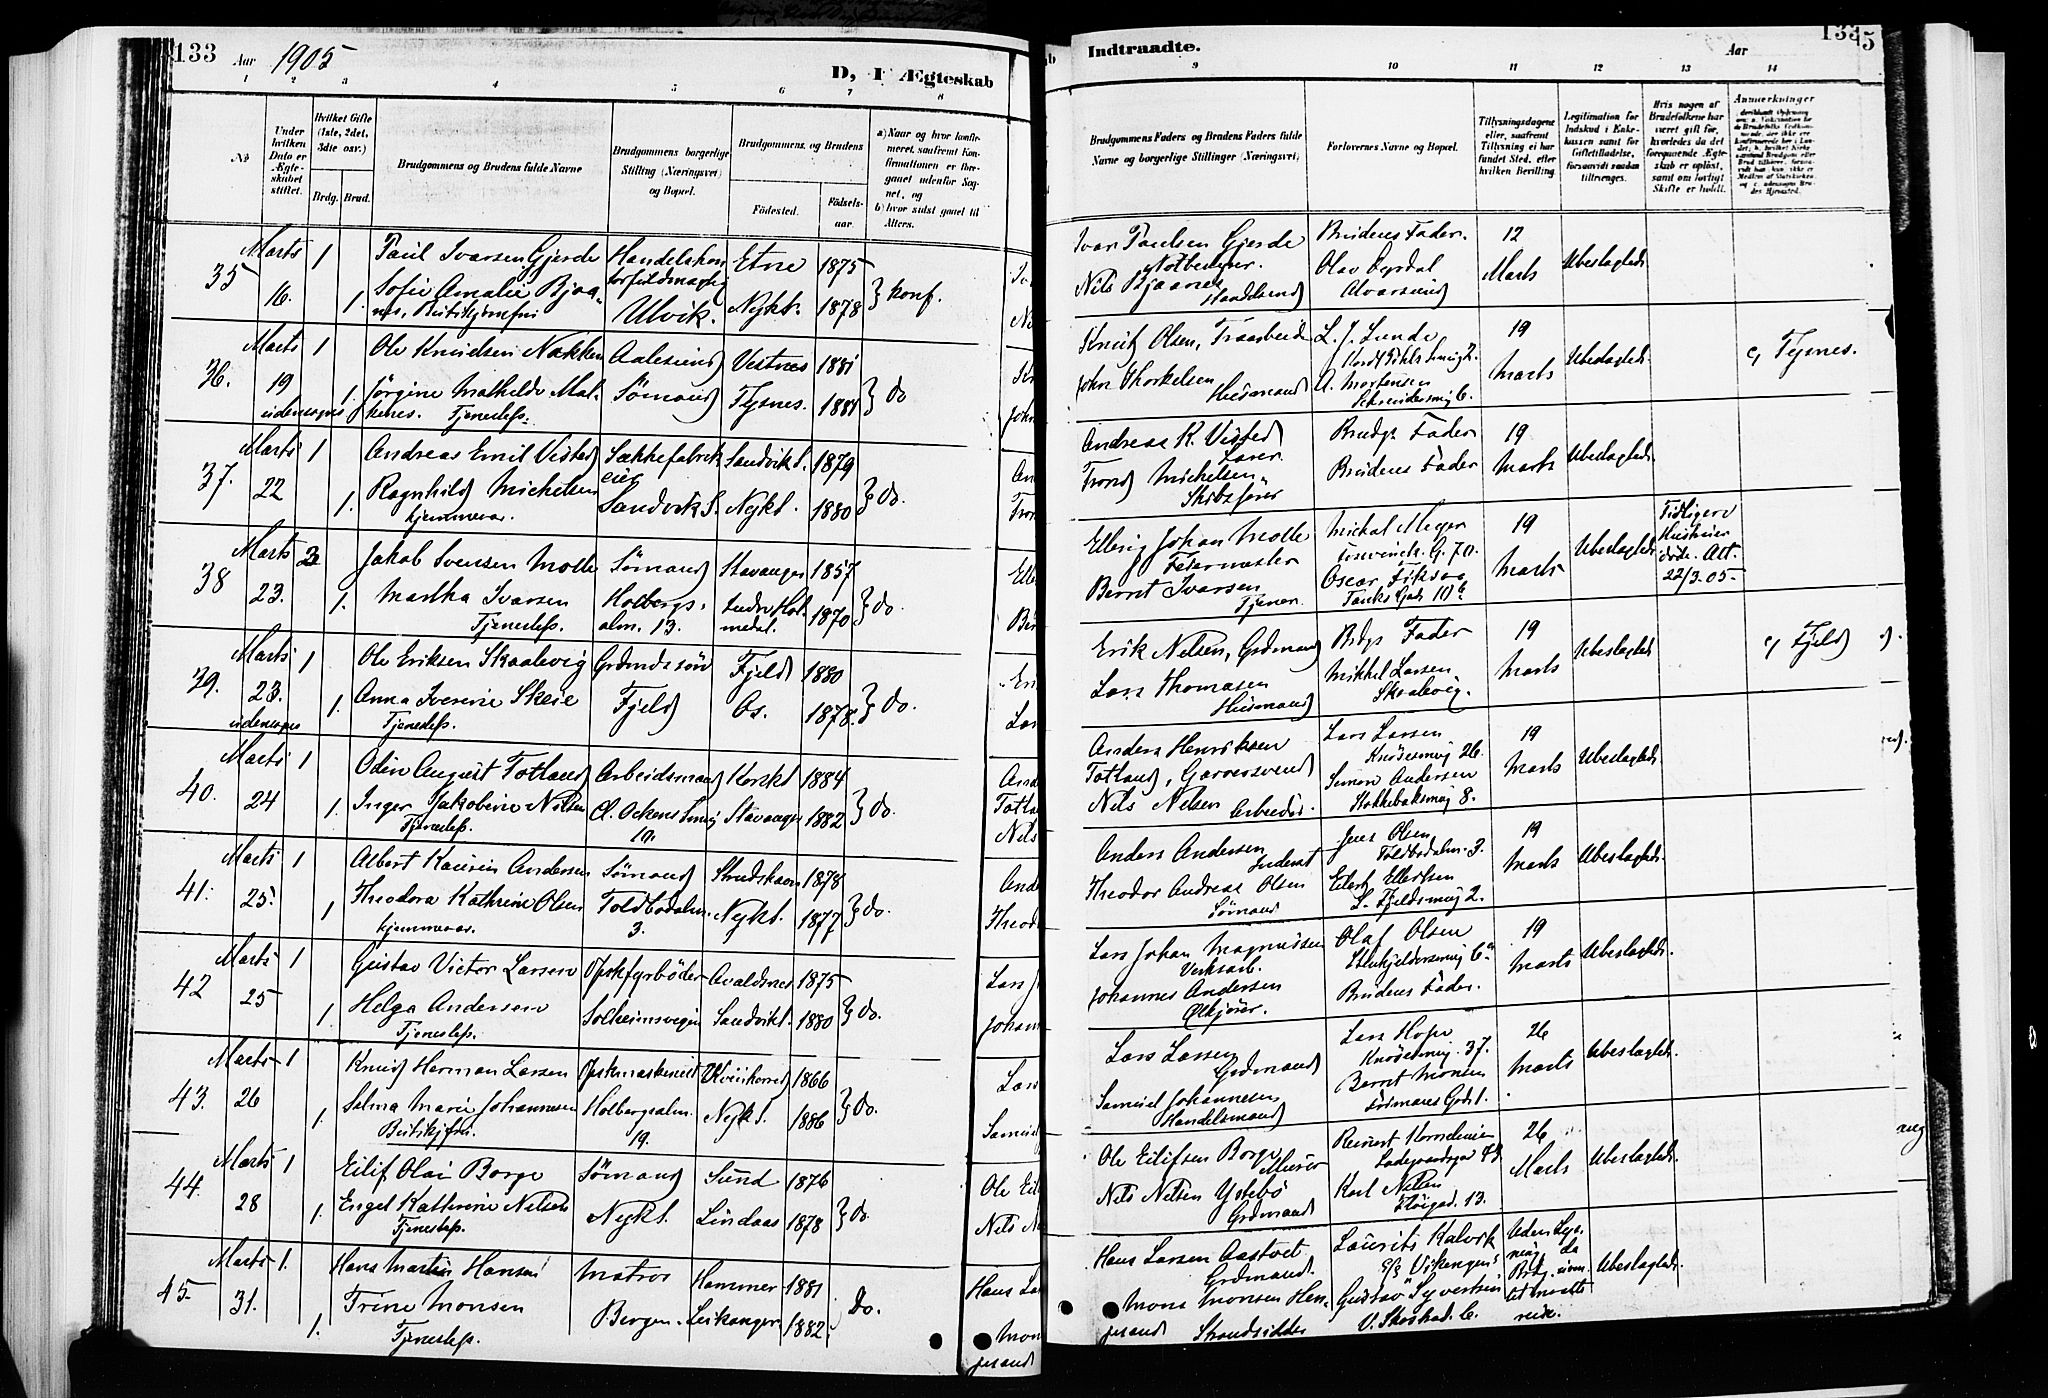 133 Aar 1905
D, I Ægteskab
1 2 3 4 5 6 7 8
No
Under hvilken Dato er Ægteskabet stiftet.
Hvilket Gifte (1ste, 2det, 3die osv.)
Brdg. Brud.
Brudgommens og Brudens fulde Navne
Brudgommens borgerlige Stilling (Næringsvei) og Bopæl.
Brudgommens og Brudens
Födested.
Födselsaar.
a) Naar og hvor konfirmeret, saafremt Konfirmationen er foregaaet udenfor Sognet, og
b) hvor sidst gaaet til Alters.
35 Marts 16. 1 1.
Paul Ivarsen Gjerde
Sofie Amalie Bjaanes, Butikjomfru
Handelskontorfuldmægtig
Ulvik.
Etne 1875
Nykt. 1878 } konf.
36. Marts 19 udensogns 1 1.
Ole Knudsen Nakken
Jørgine Mathilde Malkenes. Tjenestep.
Aalesund
Sømand
Vestnes 1881
Tysnes. 1881 } do
37. Marts 22 1 1.
Andreas Emil Visted
Ragnhild Michelsen
hjemmevær.
Sækkefabrikeier
Sandvik S.
Sandvik S. 1879
Nykt. 1880 } do.
38 Marts 23. 2 1.
Jakob Svensen Molle
Martha Ivarsen
Tjenestep.
Sømand
Holbergsalm. 13.
Stavanger 1857
Indre Holmedal. 1870 } do.
39. Marts 23. udensogns 1 1.
Ole Eriksen Skaalevig
Anna Iverine Skeie
Tjenestep.
Grdmdssøn
Fjeld
Fjeld 1880
Os. 1878. } do.
40. Marts 24 1 1.
Odin August Totland
Inger Jakobine Nilsen
Tjenestep.
Arbeidsmand
Cl. Ockens Smug 10.
Korskt 1884
Stavanger 1882 } do.
41. Marts 25. 1 1
Albert Kaurin Andersen
Theodora Kathrine Olsen
hjemmevær.
Sømand
Toldbodalm. 3.
Strudshavn 1878
Nykt. 1877 } do.
42 Marts 25 1 1
Gustav Victor Larsen
Helga Andersen
Tjenestep.
Dpskfyrbøder
Solheimsvegen
Avaldsnes 1875
Sandvikt. 1880 } do.
43. Marts 26 1 1.
Knud Herman Larsen
Selma Marie Johannesen
Butikjfru.
Dpskmaskinist
Holbergsalm. 19.
Kvinherred 1866
Nykt. 1886 } do.
44. Marts 28 1 1.
Eilif Olai Borge
Engel Kathrine Nilsen
Tjenestep.
Sømand
Nykt.
Sund 1876
Lindaas 1878 } do.
45. Marts 31. 1. 1.
Hans Martin Hansen
Trine Monsen
Tjenestep.
Matros
Bergen.
Hammer 1881
Leikanger 1882. do.
Indtraadte.
Aar
133
5
9 10 11 12 13 14
Brudgommens Faders og Brudens Faders fulde Navne og borgerlige Stillinger (Næringsvei)
Forlovernes Navne og Bopæl.
Tillysningsdagene eller, saafremt Tillysning ei har fundet Sted, efter hvilken Bevilling.
Legitimation for Indskud i Enkekassen samt for Giftetilladelse, forsaavidt saadan tiltrænges.
Hvis nogen af Brudefolkene har været gift før, hvorledes da det foregaaende Ægteskab er oplöst, samt om lovligt Skifte er holdt.
Anmærkninger
Ivar Paulsen Gjerde
Notbedriver.
Nils Bjaanes
Handelsmd
Brudens Fader.
Olav Dyrdal
Alversund
12 Marts Ubeslægtede
Knud Olsen, Træarbeider
John Thorkelsen
Husmand
L. J. Lunde
A. Mortensen
19 Marts Ubeslægtede
c, Tysnes.
Andreas K. Visted
Lærer.
Trond Michelsen
Skibsfører
Brudgs Fader
Brudens Fader
19 Marts Ubeslægtede.
Ellerig Johan Molle
Bernt Ivarsen
Tjener.
Michal Meyer
Oscar Fiksoo
Tanks Gade 10 b
19 Marts Ubeslægtede
Tidligere Hustru døde. Att. 22/3.05.
Erik Nilsen, Grdmand
Lars Thomasen
Husmand
Brdgs Fader
Mikkel Larsen
Skaalevig.
19 Marts Ubeslægtede
c, Fjeld
Anders Henriksen
Totland, Garversvend
Nils Nilsen Arbeider.
Lars Larsen
Knøsesmug 26.
Simon Andersen
Hokkebaksmug 8.
19 Marts Ubeslægtede.
Anders Andersen
Inderst
Theodor Andreas Olsen
Sømand
Jens Olsen
Toldbodalm. 3.
Eilert Ellertsen
L. Fjeldsmug 2.
19 Marts Ubeslægtede.
Lars Johan Magnussen
Verksarb.
Johannes Andersen
Ølkjører.
Olaf Olsen
Stenkjeldersmug 6a
Brudens Fader.
19 Marts Ubeslægtede.
Lars Larsen
Grdmand
Samuel Johannesen
Handelsmand
Lars Hope
Knøsesmug. 37.
Bernt Monsen
26 Marts Ubeslægtede.
Ole Eilifsen Borge
Murer
Nils Nilsen Ystebø
Grdmand
Reinert Korneliusen
Ladegaardsga
Karl Nilsen
Fløigad. 13.
26 Marts Ubeslægtede.
Hans Larsen Aastvet
Grdmand.
Mons Monsen Henjesand
Strandsidder
Laurits Kalvik
Gustav Syvertsen
Uden Lysning, da Brdg.
Ubeslægtede.